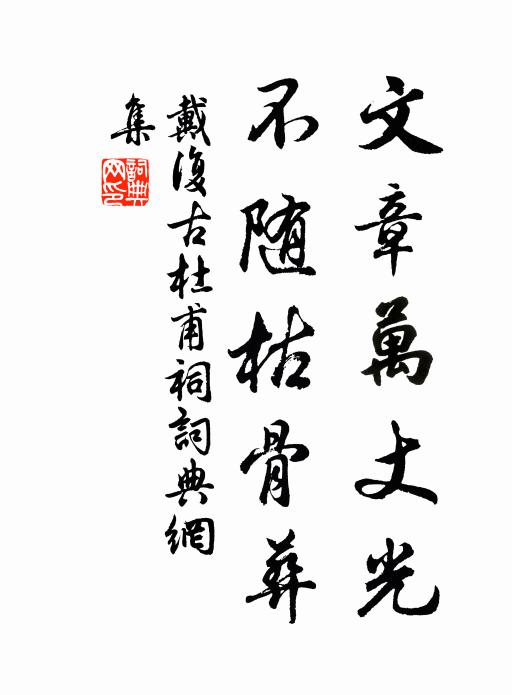 文章萬丈光
不随枯骨葬
戴復古杜甫祠詞典網
集
詞典网印